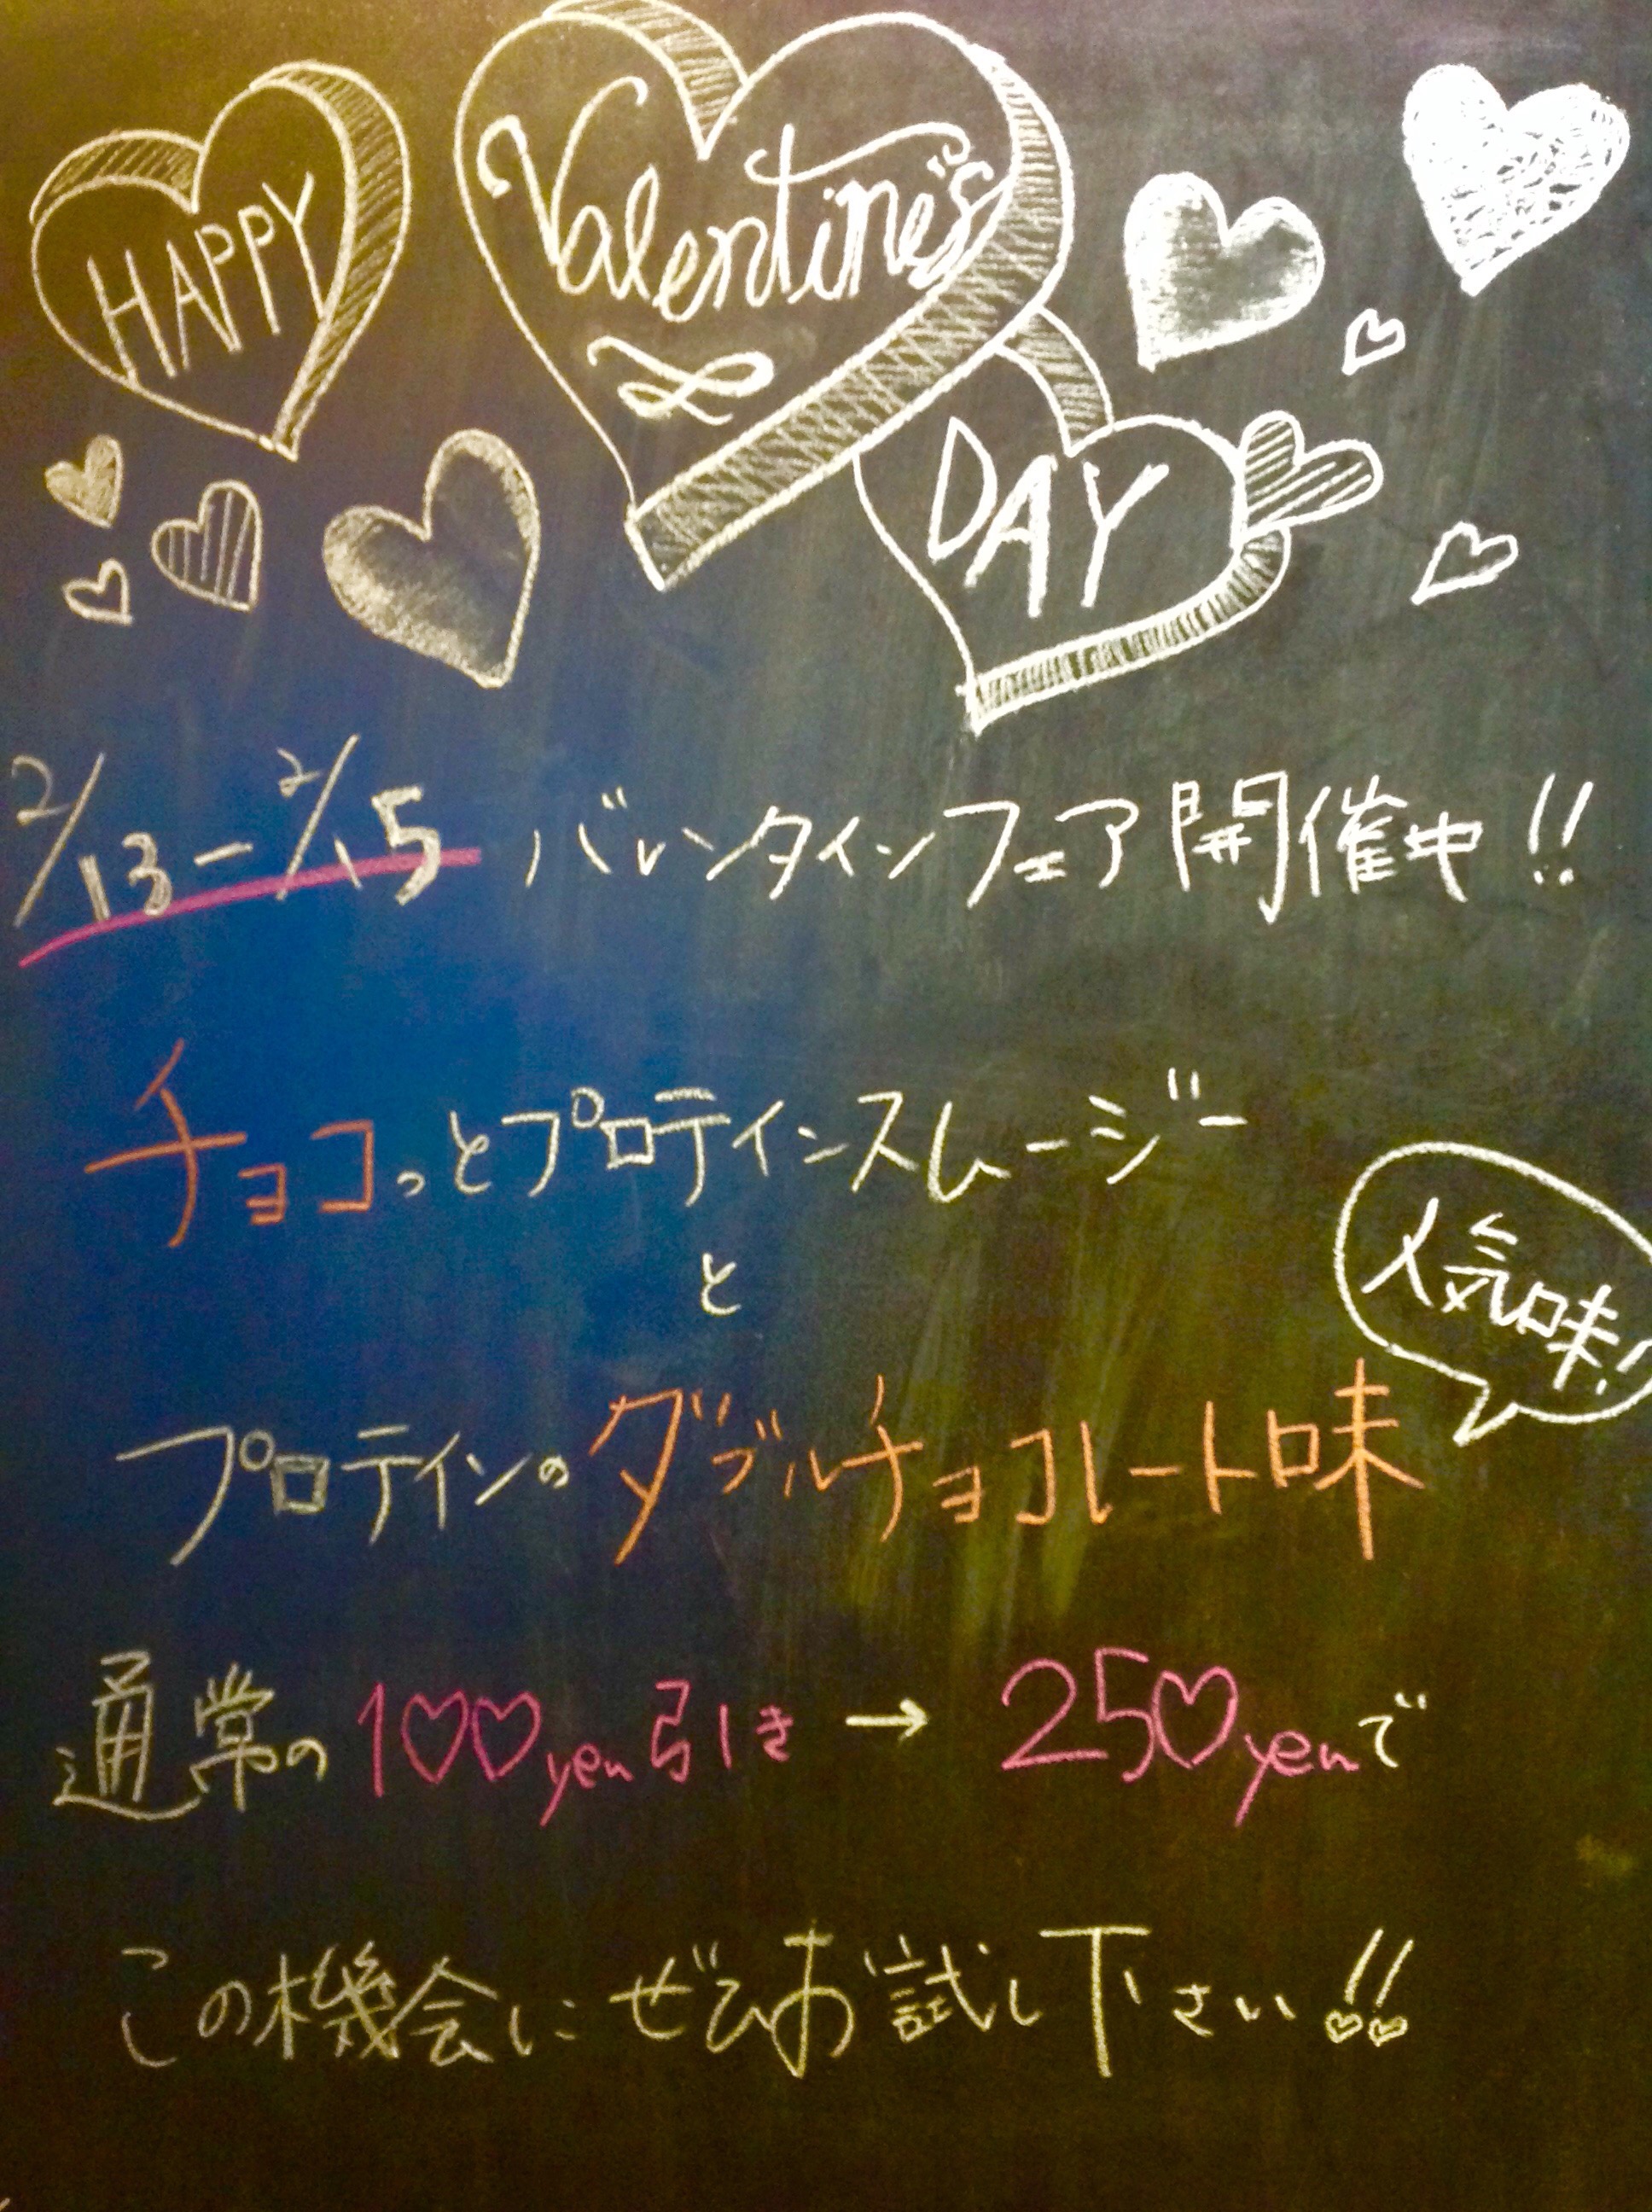 HAPPY
Valentine's
DAY
2/13-2/15 バレンタインフェア開催中!!
チョコっとプロテインスムージー
と
人気味!
プロテインのダブルチョコレート味
通常の100yen引き→250yenで
この機会にぜひお試し下さい!!